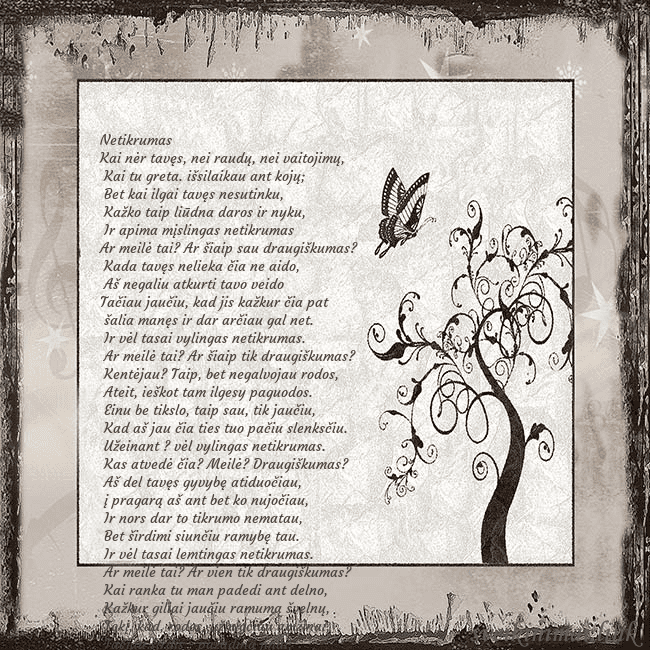 Netikrumas
Kai nėr tavęs, nei raudų, nei vaitojimų,
Kai tu greta. išsilaikau ant kojų;
Bet kai ilgai tavęs nesutinku,
Kažko taip liūdna daros ir nyku,
Ir apima mįslingas netikrumas
Ar meilė tai? Ar šiaip sau draugiškumas?
Kada tavęs nelieka čia ne aido,
Aš negaliu atkurti tavo veido
Tačiau jaučiu, kad jis kažkur čia pat
šalia manęs ir dar arčiau gal net.
Ir vėl tasai vylingas netikrumas.
Ar meilė tai? Ar šiaip tik draugiškumas?
Kentėjau? Taip, bet negalvojau rodos,
Ateit, ieškot tam ilgesy paguodos.
Einu be tikslo, taip sau, tik jaučiu,
Kad aš jau čia ties tuo pačiu slenksčiu.
Užeinant ? vėl vylingas netikrumas.
Kas atvedė čia? Meilė? Draugiškumas?
Aš del tavęs gyvybę atiduočiau,
į pragarą aš ant bet ko nujočiau,
Ir nors dar to tikrumo nematau,
Bet širdimi siunčiu ramybę tau.
Ir vėl tasai lemtingas netikrumas.
Ar meilė tai? Ar vien tik draugiškumas?
Kai ranka tu man padedi ant delno,
Kažkur giliai jaučiu ramumą švelnų,